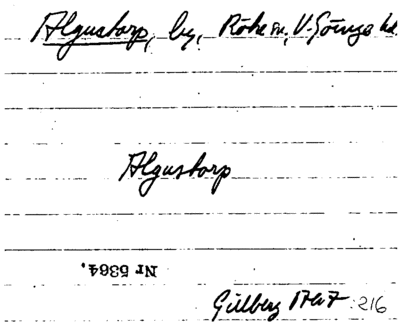 Algustorp, by, Röke sn, V. Göinge hd.
Algustorp
Nr 5364.
Gillberg 1767 : 216